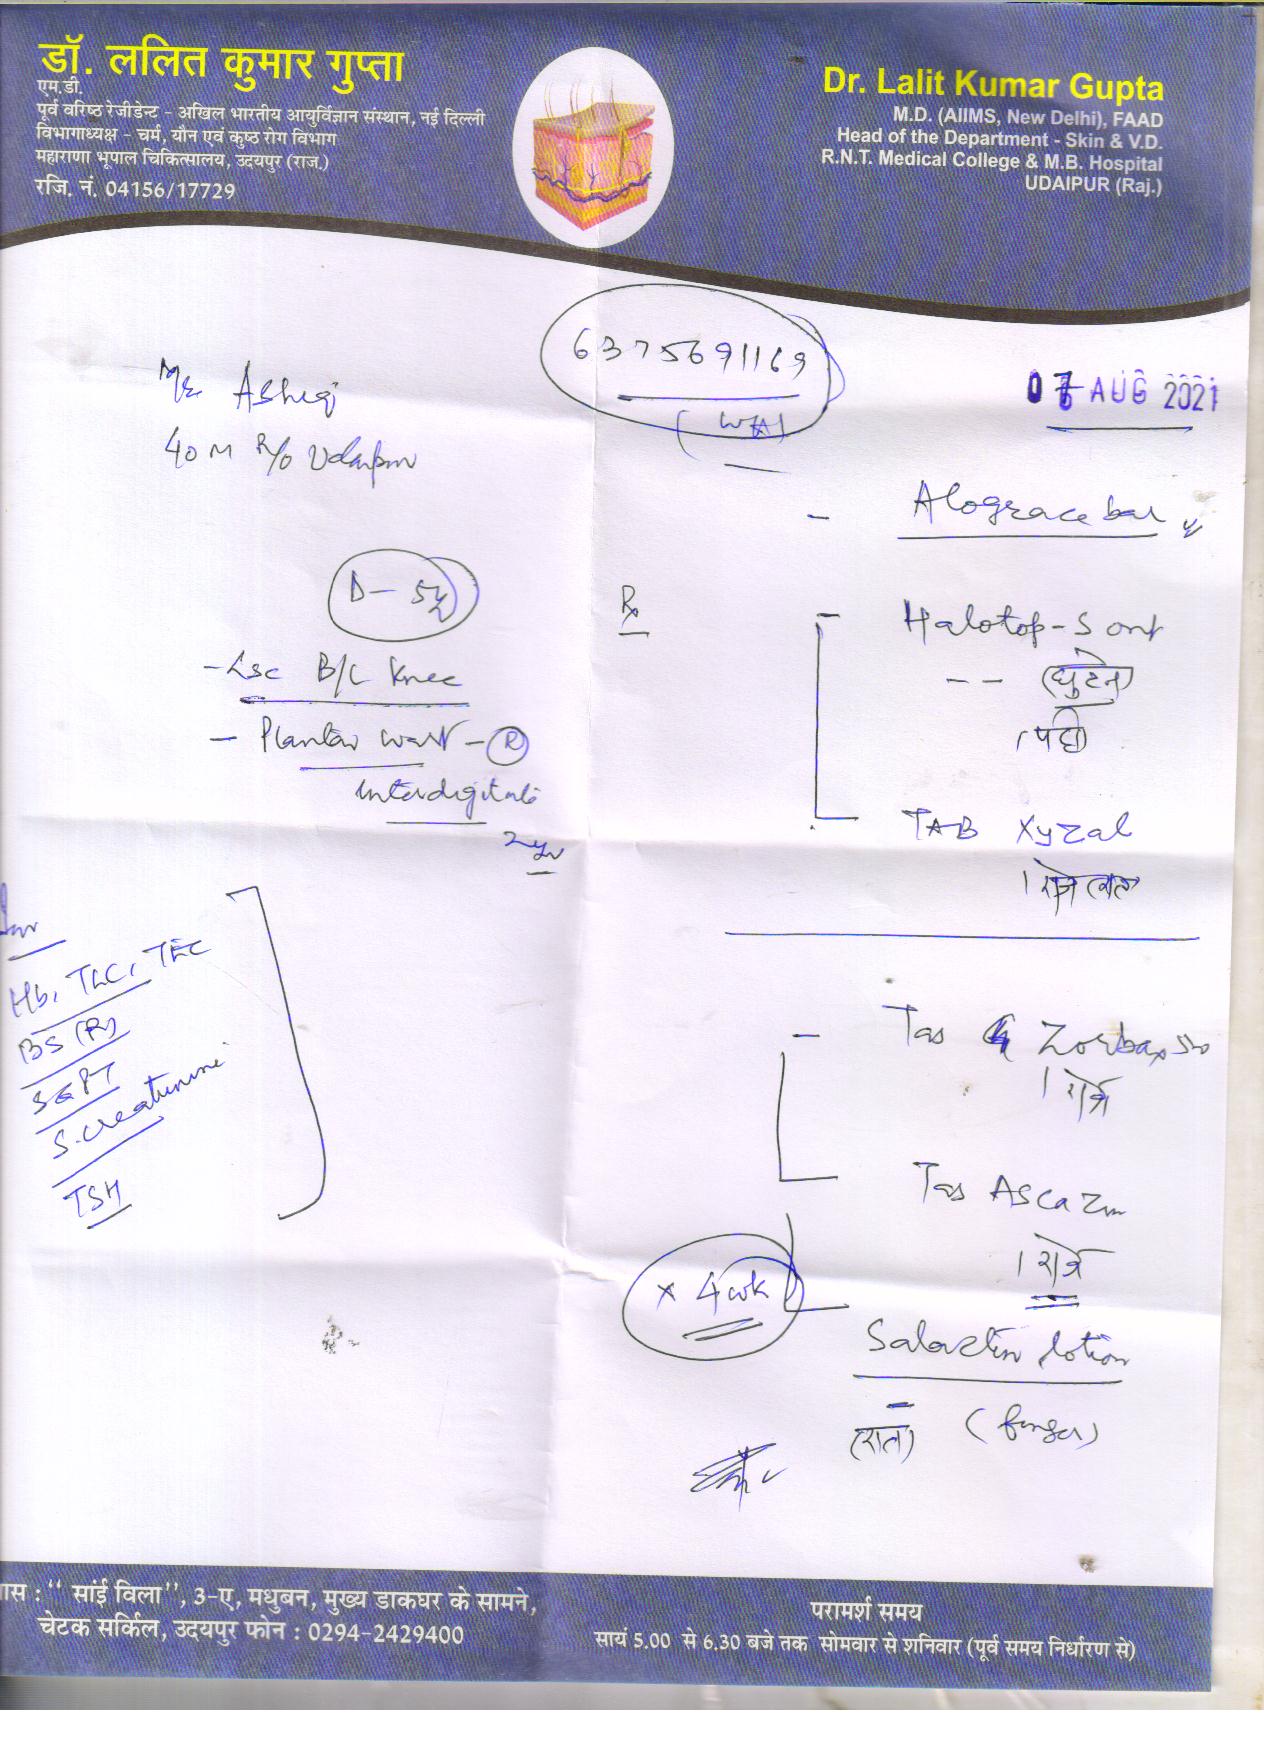 डॉ. ललित कुमार गुप्ता
एम.डी.
पूर्व वरिष्ठ रेजीडेन्ट - अखिल भारतीय आयुर्विज्ञान संस्थान, नई दिल्ली
विभागाध्यक्ष - चर्म, यौन एवं कुष्ठ रोग विभाग
महाराणा भूपाल चिकित्सालय, उदयपुर (राज.)
रजि. नं. 04156/17729
Dr. Lalit Kumar Gupta
M.D. (AIIMS, New Delhi), FAAD
Head of the Department - Skin & V.D.
R.N.T. Medical College & M.B. Hospital
UDAIPUR (Raj.)
6375691169
(WA)
07 AUG 2021
Mr Ashiq
40 M R/o Udaipur
D - 5y
- LSC B/L Knee
- Plantar wart - R
interdigital
2yr
Hb, TLC, TEC
BS (R)
SGPT
S. creatinine
TSH
- Alograce bar
Rx
- Halotop-S ont
-- (घुटने)
(पट्टी)
TAB Xyzal
1 रोज रात
- Tab Zorbax
1 रोज
Tab Ascazin
1 रोज
x 4 wk
Salactin lotion
(रात) (finger)
ास : " सांई विला", 3-ए, मधुबन, मुख्य डाकघर के सामने,
चेटक सर्किल, उदयपुर फोन : 0294-2429400
परामर्श समय
सायं 5.00 से 6.30 बजे तक सोमवार से शनिवार (पूर्व समय निर्धारण से)